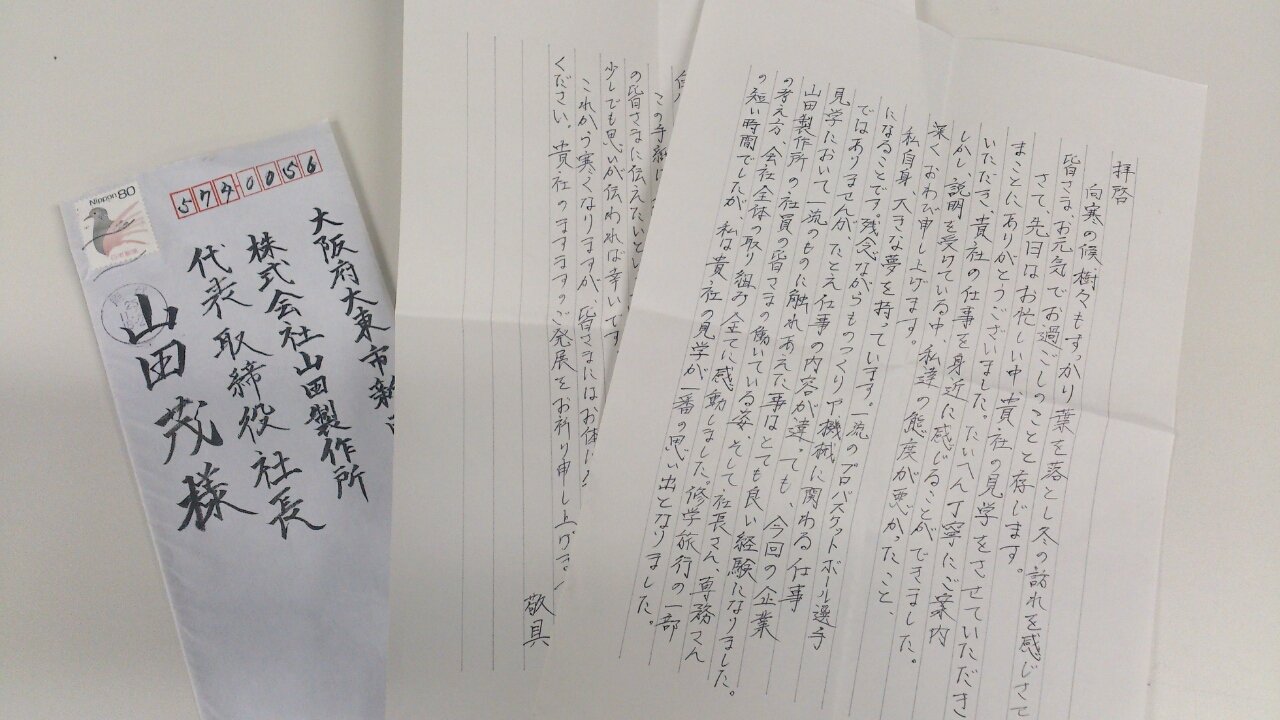 拝啓
向寒の候、樹々もすっかり葉を落とし冬の訪れを感じさて
皆さま、お元気でお過ごしのことと存じます。
さて、先日はお忙しい中、貴社の見学をさせていただき
まことにありがとうございました。たいへん丁寧にご案内
いただき、貴社の仕事を身近に感じることができました。
しかし、説明を受けている中、私達の態度が悪かったこと、
深くおわび申し上げます。
私自身、大きな夢を持っています。一流のプロバスケットボール選手
になることです。残念ながらものつくりや機械に関わる仕事
ではありませんが、たとえ仕事の内容が違っても、今回の企業
見学において、一流のものに触れあえた事はとても良い経験になりました。
山田製作所の社員の皆さまの働いている姿、そして社長さん、専務さん
の考え方、会社全体の取り組み全てに感動しました。修学旅行の一部
の短い時間でしたが、私は貴社の見学が一番の思い出となりました。
この手紙に
の皆さまに伝えたいとい
少しでも思いが伝われば幸いです。
これから寒くなりますが、皆さまにはお体に
ください。貴社のますますのご発展をお祈り申し上げま
敬具
Nippon 80
5740056
大阪府大東市新
株式会社山田製作所
代表取締役社長
山田茂様